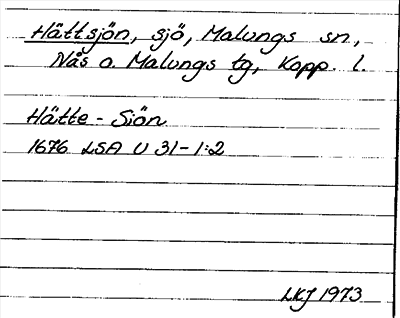 Hättsjön, sjö, Malungs sn,
Nås o. Malungs tg, Kopp. l.
Hätte-Siön
1676 LSA U 31-1:2
LKJ 1973